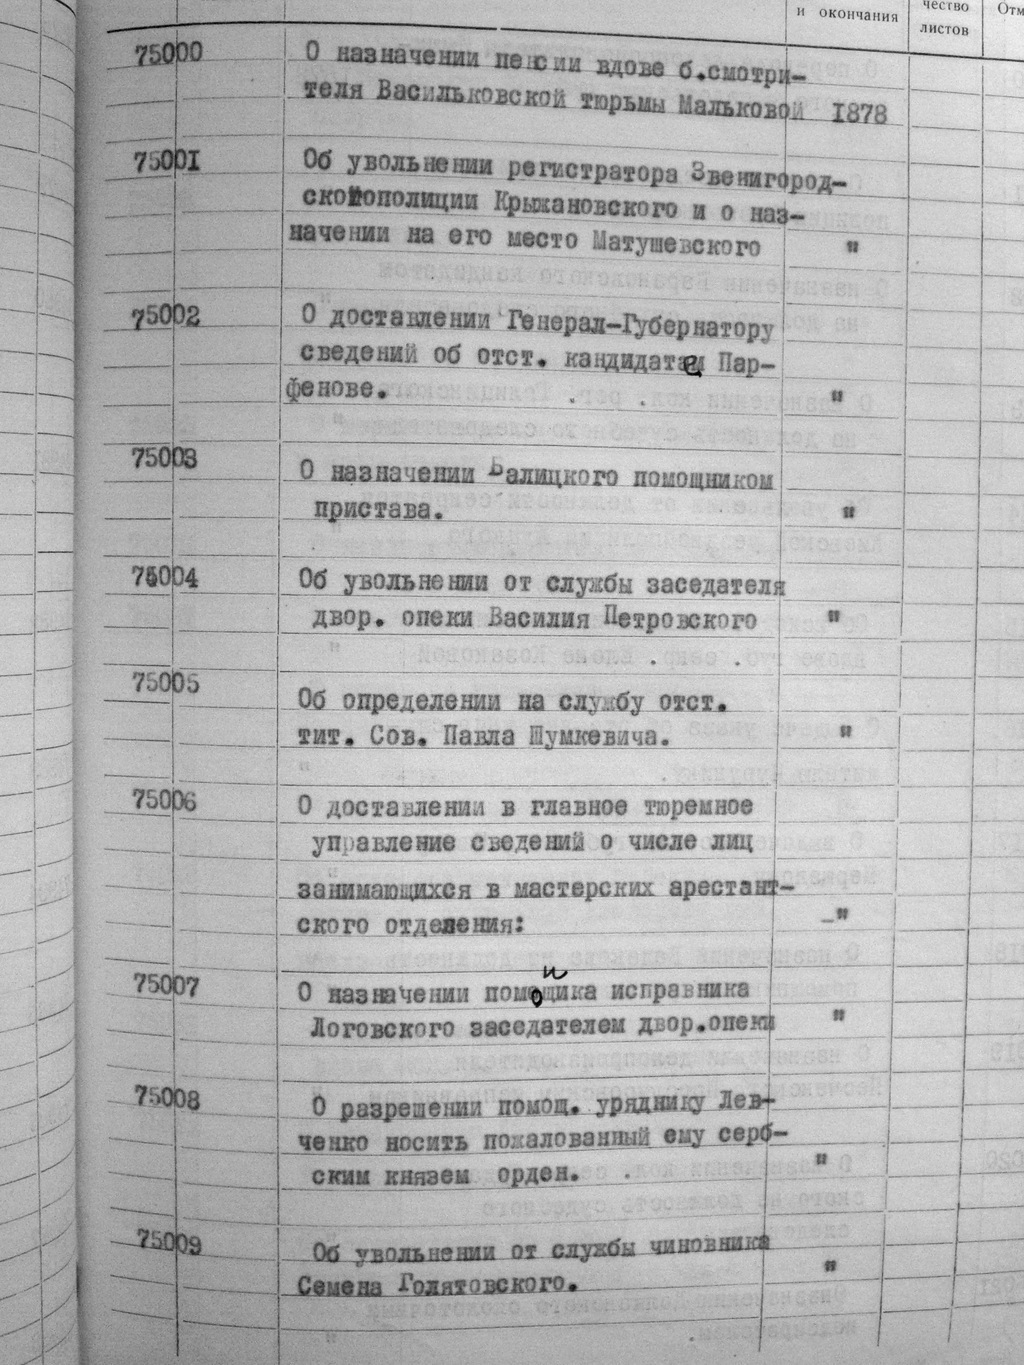 и окончания
чество
листов
Отм
75000
О назначении пенсии вдове б.смотри-
теля Васильковской тюрьмы Мальковой 1878
75001
Об увольнении регистратора Звенигород-
ской полиции Крыжановского и о наз-
начении на его место Матушевского "
75002
О доставлении Генерал-Губернатору
сведений об отст. кандидате Пар-
фенове. "
75003
О назначении Балицкого помощником
пристава. "
75004
Об увольнении от службы заседателя
двор. опеки Василия Петровского "
75005
Об определении на службу отст.
тит. Сов. Павла Шумкевича. "
75006
О доставлении в главное тюремное
управление сведений о числе лиц
занимающихся в мастерских арестант-
ского отделения: -"
75007
и
О назначении помощика исправника
Логовского заседателем двор.опеки "
75008
О разрешении помощ. уряднику Лев-
ченко носить пожалованный ему серб-
ским князем орден. "
75009
Об увольнении от службы чиновника
Семена Голятовского. "